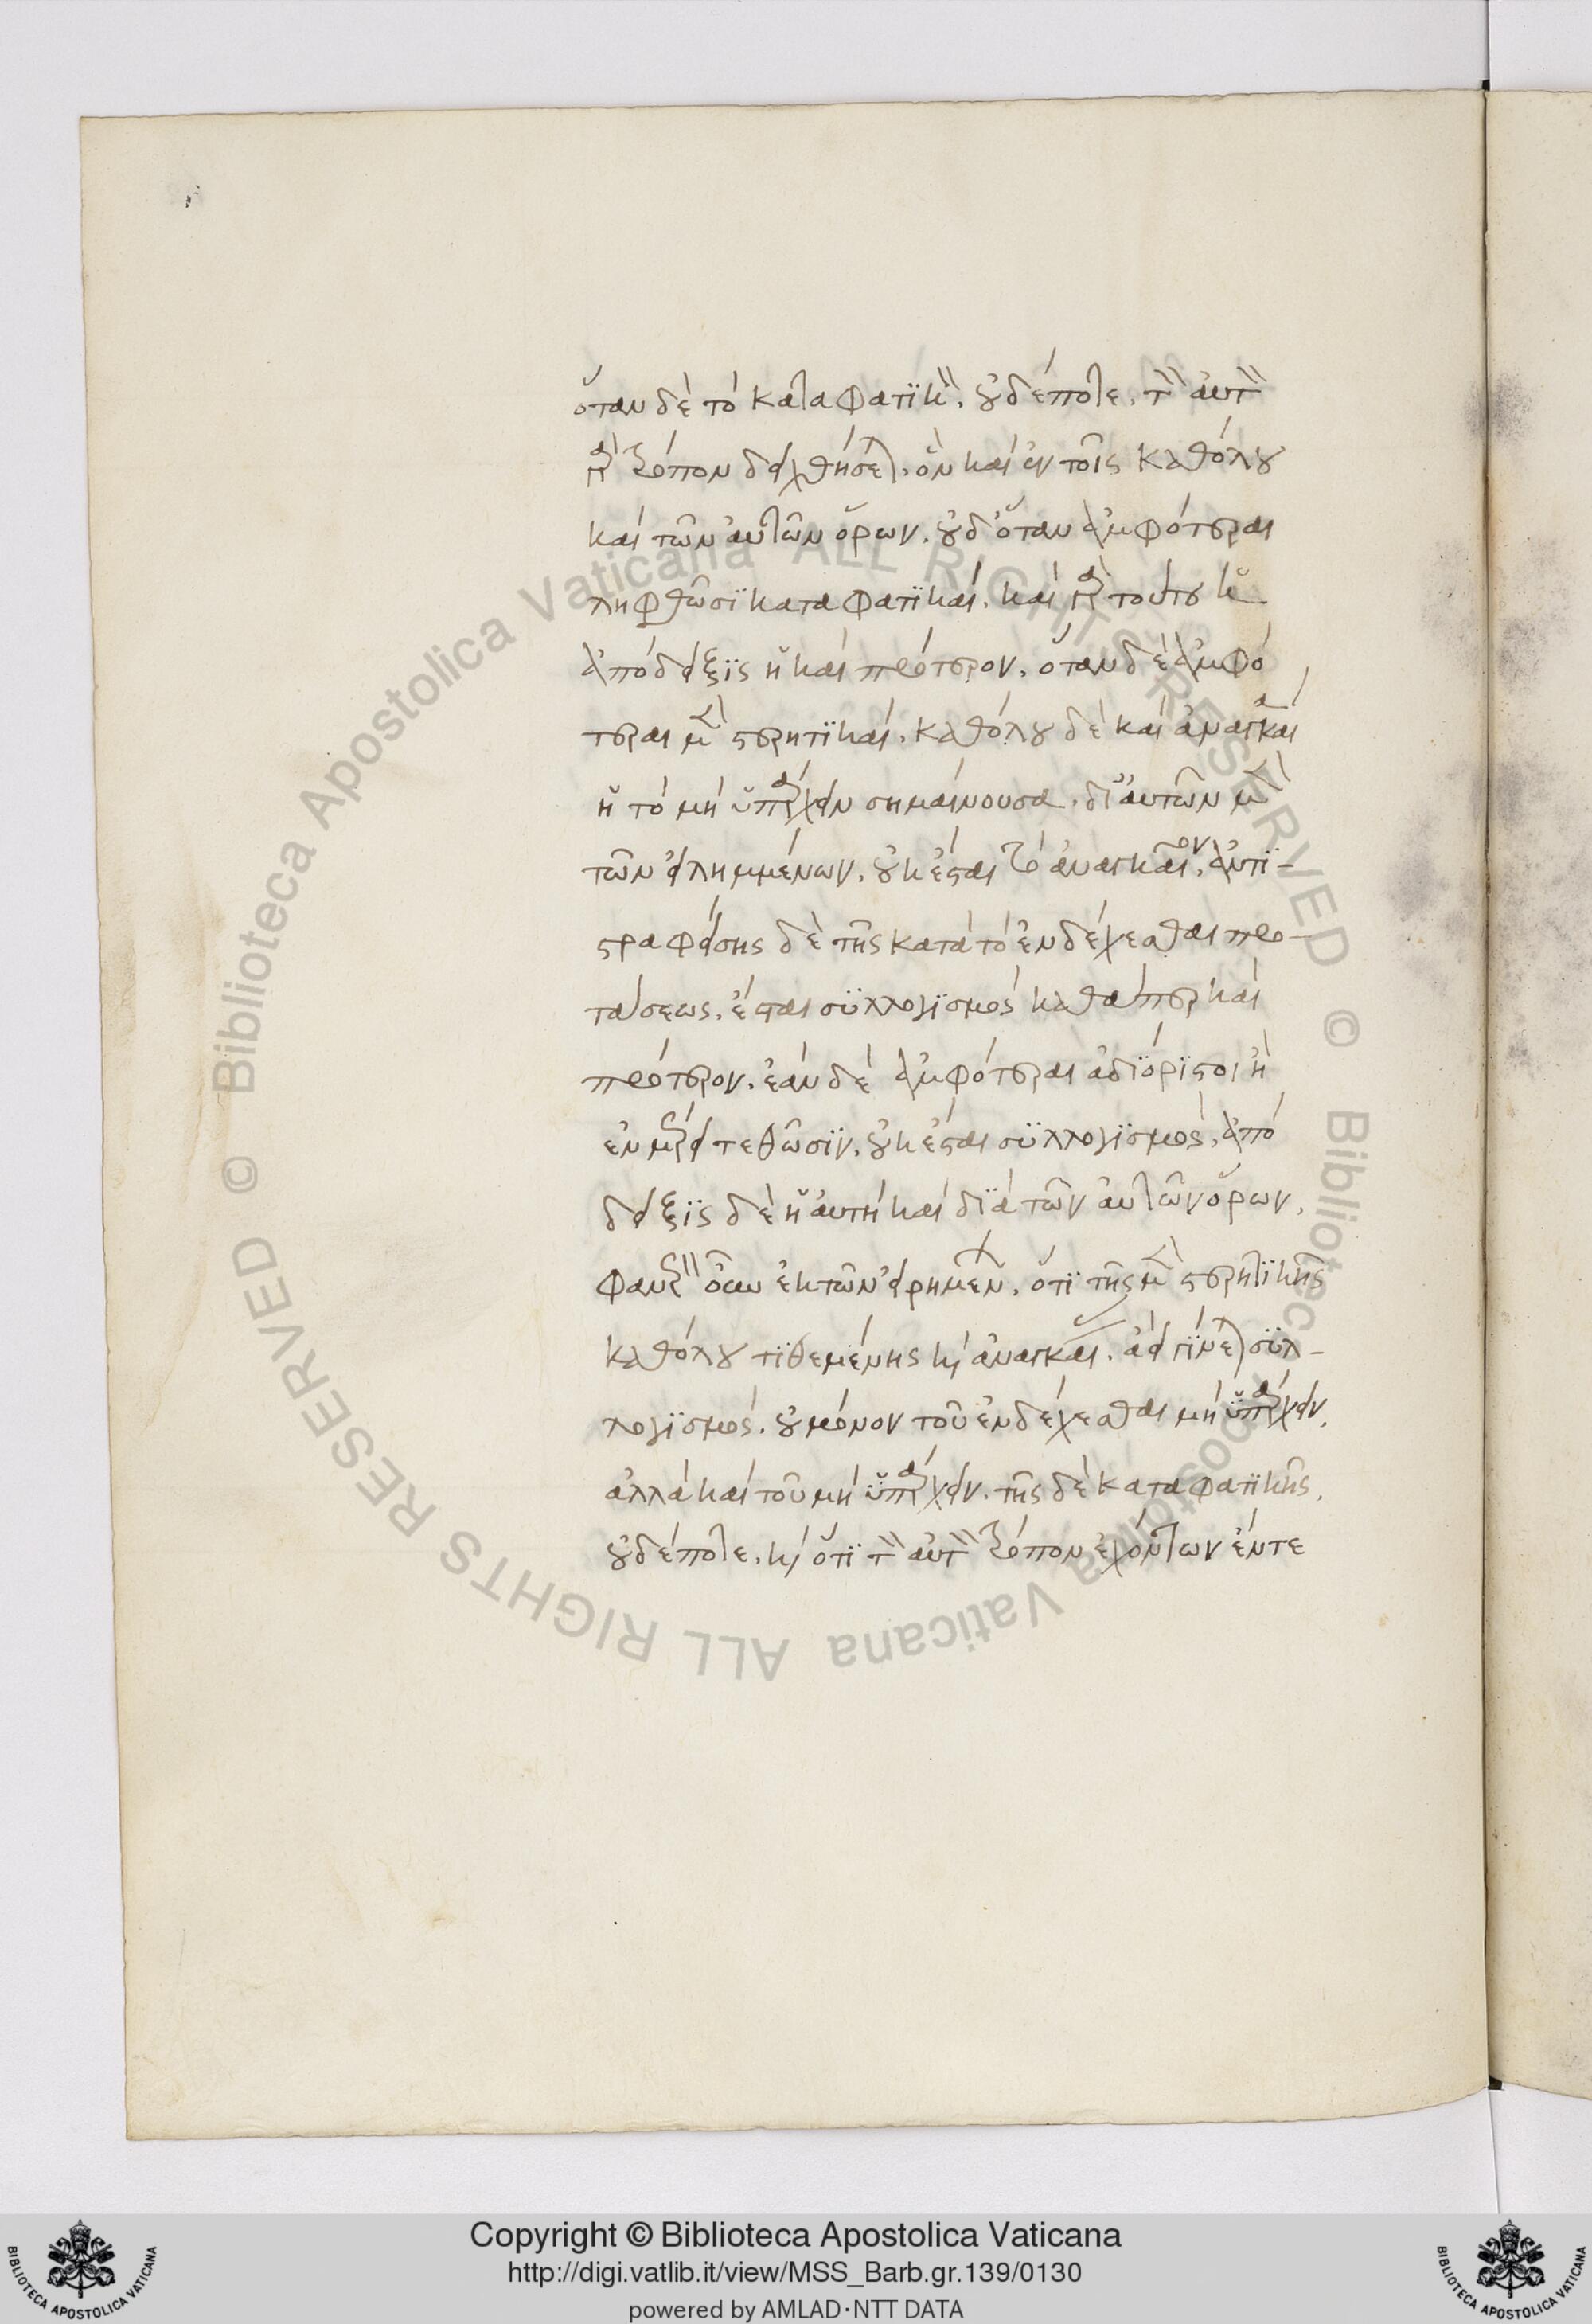 ὅταν δὲ τὸ καταφατικὸν, οὐδέποτε. τὸν αὐτὸν
γὰρ τρόπον δειχθήσεται, ὃν καὶ ἐν τοῖς καθόλου
καὶ τῶν αὐτῶν ὅρων. οὐδ' ὅταν ἀμφότεραι
ληφθῶσι καταφατικαί. καὶ γὰρ τούτου ἡ
ἀπόδειξις ἡ καὶ πρότερον. ὅταν δὲ ἀμφό
τεραι μὲν στερητικαί. καθόλου δὲ καὶ ἀναγκαία
ἡ τὸ μὴ ὑπάρχειν σημαίνουσα. δι' αὐτῶν μὲν
τῶν εἰλημμένων, οὐκ ἔσται τὸ ἀναγκαῖον. ἀντι-
στραφείσης δὲ τῆς κατὰ τὸ ἐνδέχεσθαι προ-
τάσεως, ἔσται συλλογισμὸς καθάπερ καὶ
πρότερον. ἐὰν δὲ ἀμφότεραι ἀδιόριστοι ἢ
ἐν μέρει τεθῶσιν, οὐκ ἔσται συλλογισμός, ἀπό
δειξις δὲ ἡ αὐτὴ καὶ διὰ τῶν αὐτῶν ὅρων.
φανερὸν οὖν ἐκ τῶν εἰρημένων, ὅτι τῆς μὲν στερητικῆς
καθόλου τιθεμένης καὶ ἀναγκαίας. ἀεὶ γίνεται συλ-
λογισμός. οὐ μόνον τοῦ ἐνδέχεσθαι μὴ ὑπάρχειν,
ἀλλὰ καὶ τοῦ μὴ ὑπάρχειν. τῆς δὲ καταφατικῆς,
οὐδέποτε. καὶ ὅτι τὸν αὐτὸν τρόπον ἐχόντων ἔν τε
Copyright © Biblioteca Apostolica Vaticana
http://digi.vatlib.it/view/MSS_Barb.gr.139/0130
powered by AMLAD·NTT DATA